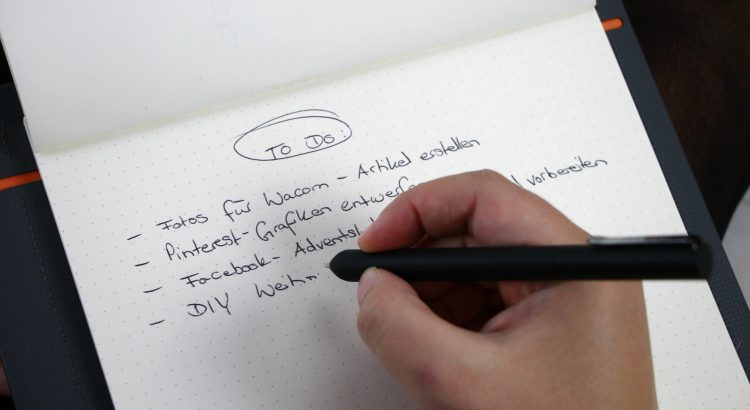 To Do:
- Fotos für Wacom - Artikel erstellen
- Pinterest-Grafiken entwerfen vorbereiten
- Facebook- Adventsk
- DIY Weihn